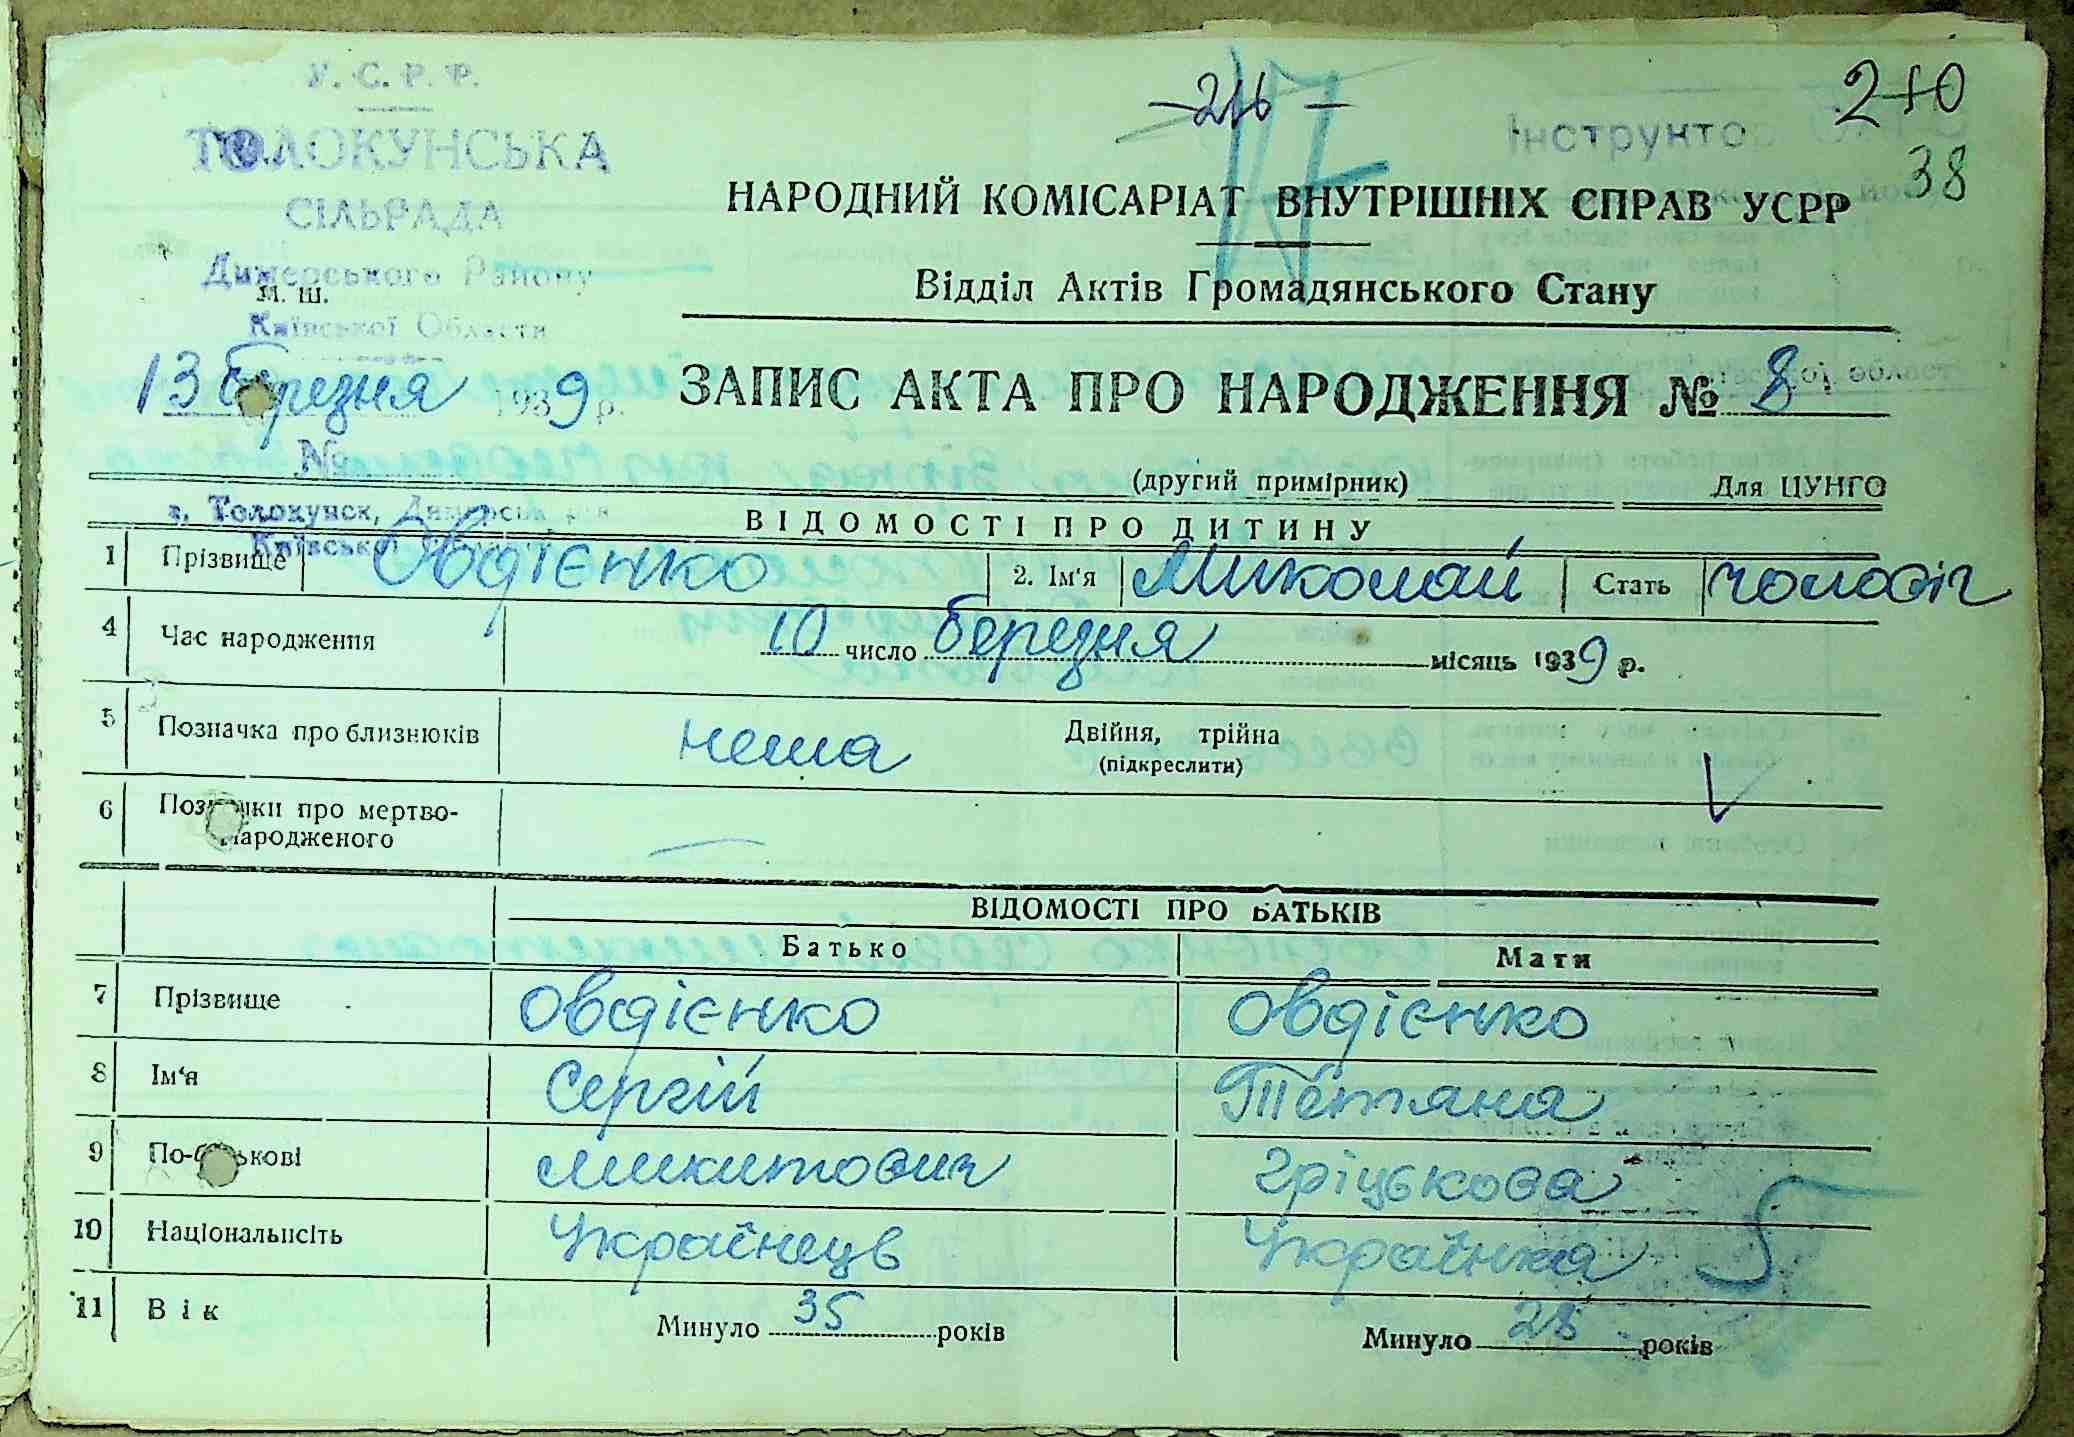 У. С. Р. Р.
-216-
17
210
38
ТОЛОКУНСЬКА
Інструктор
СІЛЬРАДА
НАРОДНИЙ КОМІСАРІАТ ВНУТРІШНІХ СПРАВ УСРР
Димерського Району
М. Ш.
Відділ Актів Громадянського Стану
Київської Области
13 березня 1939 р.
ЗАПИС АКТА ПРО НАРОДЖЕННЯ № 8
№
(другий примірник) Для ЦУНГО
с. Толокунск, Димерськ
ВІДОМОСТІ ПРО ДИТИНУ
Київської
1 Прізвище Овдієнко 2. Ім'я Миколай Стать чоловіч
4 Час народження 10 число березня місяць 1939 р.
5 Позначка про близнюків нема Двійня, трійна
(підкреслити)
6 Позначки про мертво-
народженого —
ВІДОМОСТІ ПРО БАТЬКІВ
Батько Мати
7 Прізвище Овдієнко Овдієнко
8 Ім'я Сергій Тетяна
9 По-батькові Микитович Гріцькова
10 Національність Українець Українка
5
11 Вік Минуло 35 років Минуло 28 років